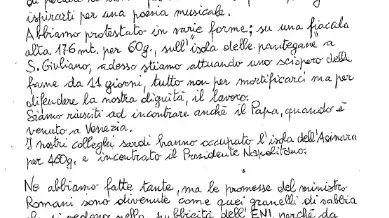 ispirarti per una poesia musicale.
Abbiamo protestato in varie forme; su una fiaccola
alta 176 mt. per 60g. sull'isola delle pantegane a
S. Giuliano, adesso stiamo attuando uno sciopero della
fame da 11 giorni, tutto non per mortificarci ma per
difendere la nostra dignità, il lavoro.
Siamo riusciti ad incontrare anche il Papa, quando è
venuto a Venezia.
I nostri colleghi sardi hanno occupato l'isola dell'Asinara
per 460g. e incontrato il Presidente Napolitano.
Ne abbiamo fatte tante, ma le promesse del ministro
Romani sono divenute come quei granelli di sabbia
che si vedono nella pubblicità dell'ENI, perché da